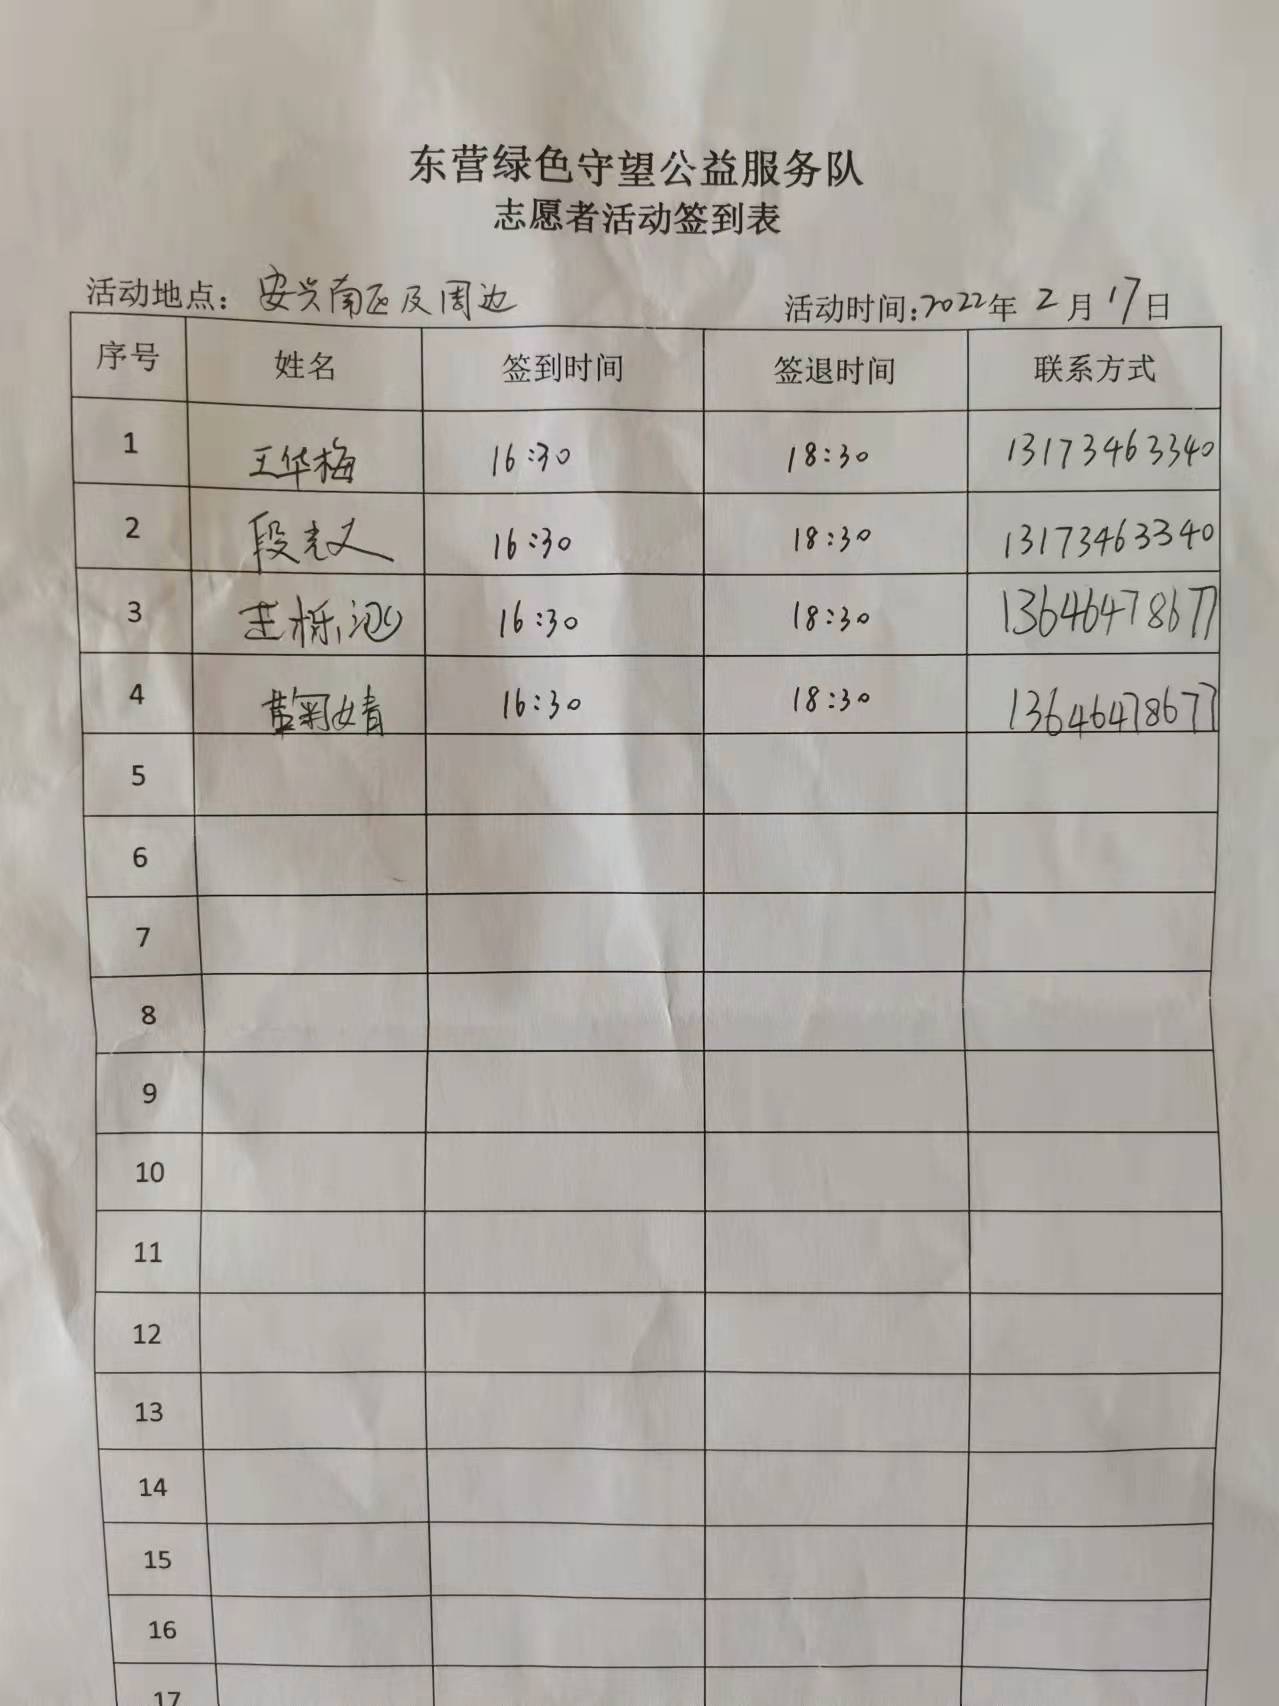 东营绿色守望公益服务队
志愿者活动签到表
活动地点：安兴南区及周边 活动时间：2022年2月17日
序号 姓名 签到时间 签退时间 联系方式
1 王华梅 16:30 18:30 13173463340
2 段志义 16:30 18:30 13173463340
3 16:30 18:30 13646478677
4 黄菊婧 16:30 18:30 13646478677
5
6
7
8
9
10
11
12
13
14
15
16
17